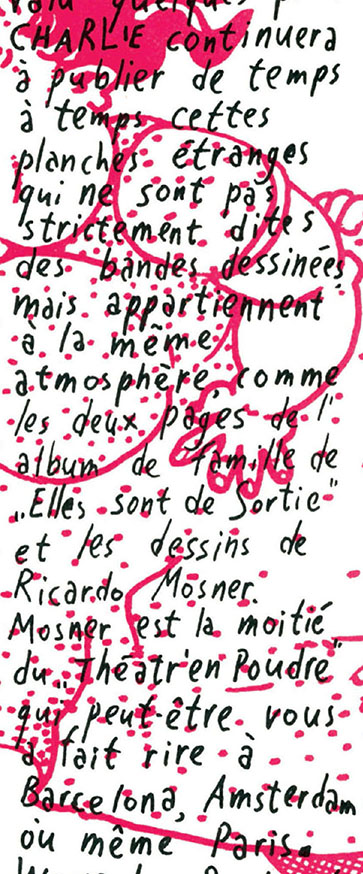 CHARLIE continuera
à publier de temps
à temps cettes
planches étranges
qui ne sont pas
strictement dites
des bandes dessinées
mais appartiennent
à la même
atmosphère, comme
les deux pages de l'
album de famille de
„Elles sont de Sortie"
et les dessins de
Ricardo Mosner.
Mosner est la moitié
du „Théatr'en Poudre"
qui peut-être vous
a fait rire à
Barcelona, Amsterdam
où même Paris.